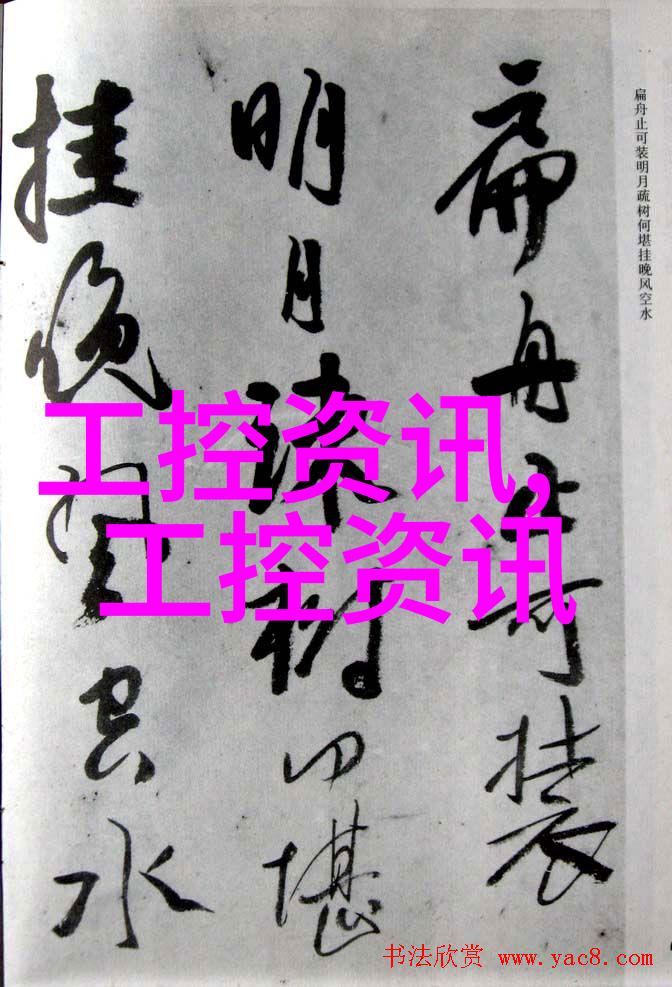 扁舟止可装明月疏树何堪挂晚风空水
扁舟止可装
明月疏树何堪
挂晚风空水
工控资讯,
工控资讯
书法欣赏 www.yac8.com